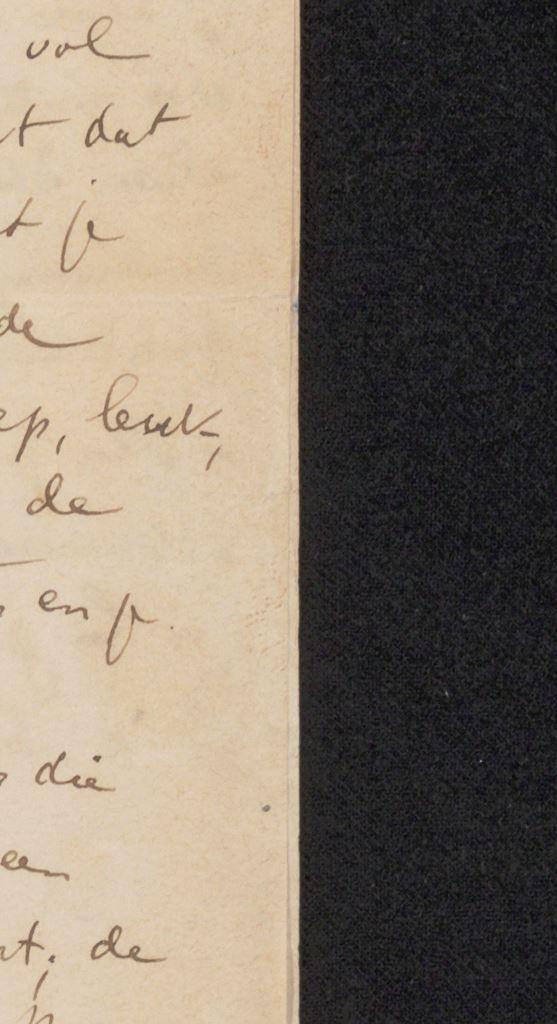 vol
t dat
t je
de
ep, leuk,
de
en p.
die
een
t; de